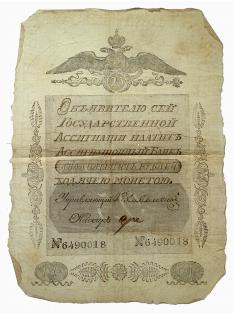 Объявителю сей
Государственной
Ассигнаціи платитъ
Ассигнаціонный Банкъ
рублей
ходячею монетою.
Управляющій
Кассиръ
№6490018 №6490018